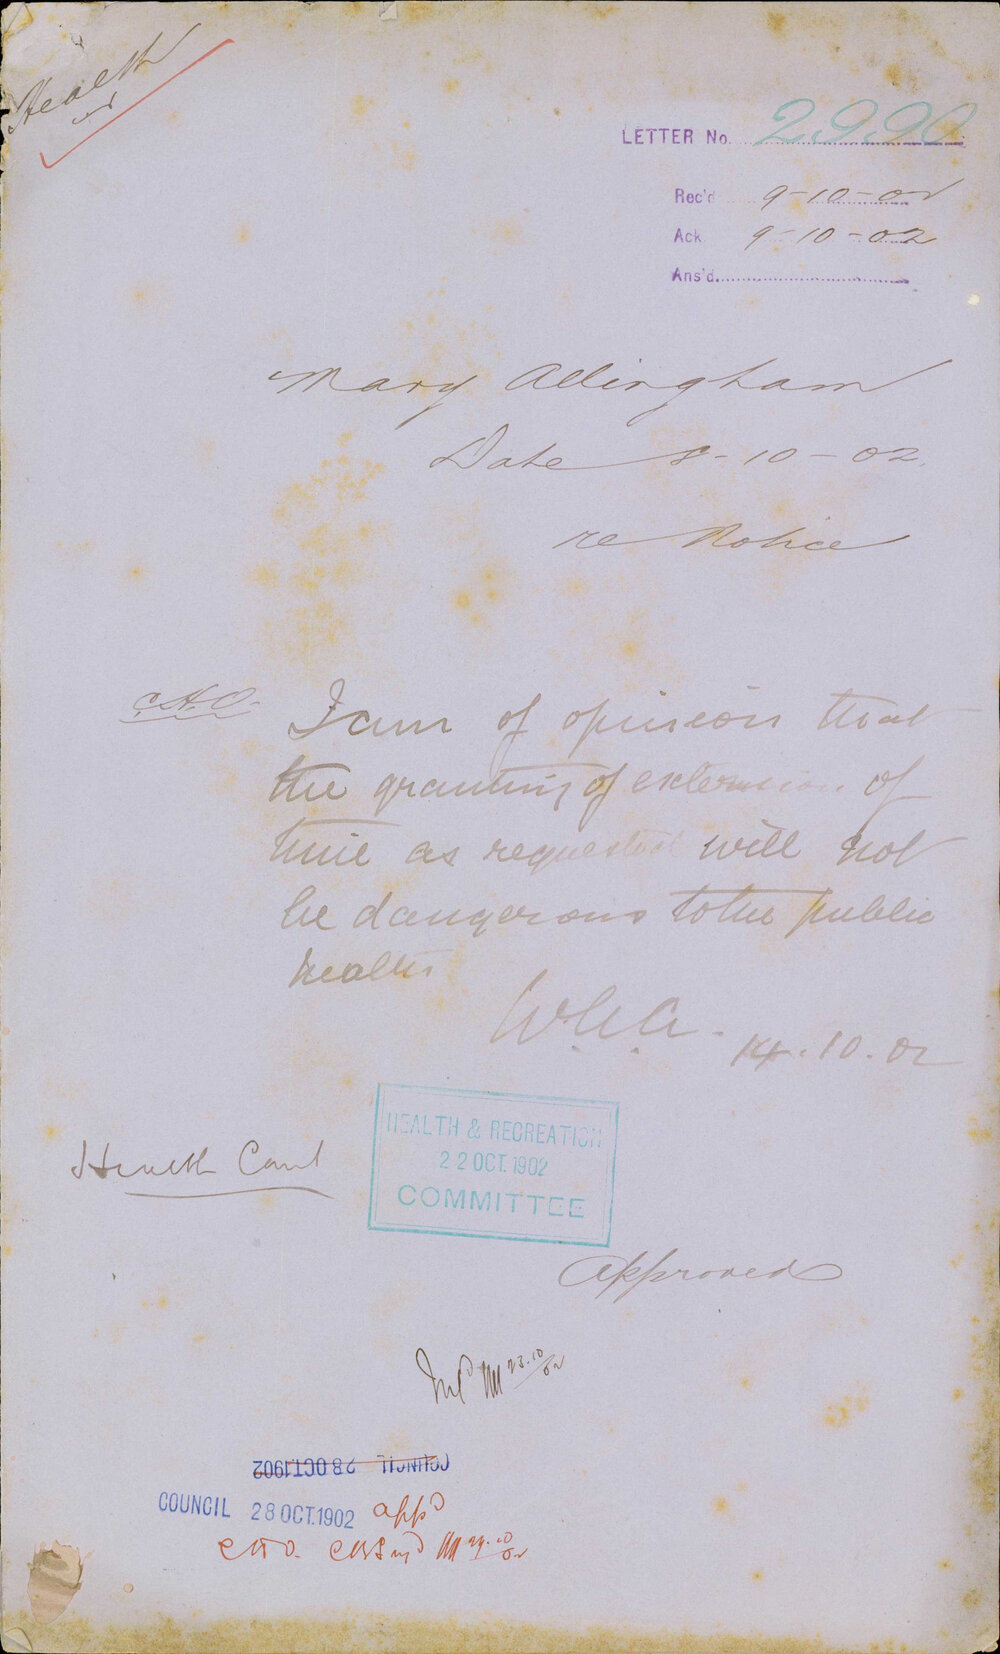 Health
LETTER No. 2990
Rec'd 9-10-02
Ack 9-10-02
Ans'd.
Mary Allingham
Date 8-10-02.
re Notice
C.H.O. I am of opinion that
the granting of extension of
time as requested will not
be dangerous to the public
health
14.10.02
HEALTH & RECREATION
22 OCT. 1902
COMMITTEE
Health Comt
Approved
23.10/02
COUNCIL 28 OCT. 1902
COUNCIL 28 OCT. 1902 appd
29.10/02